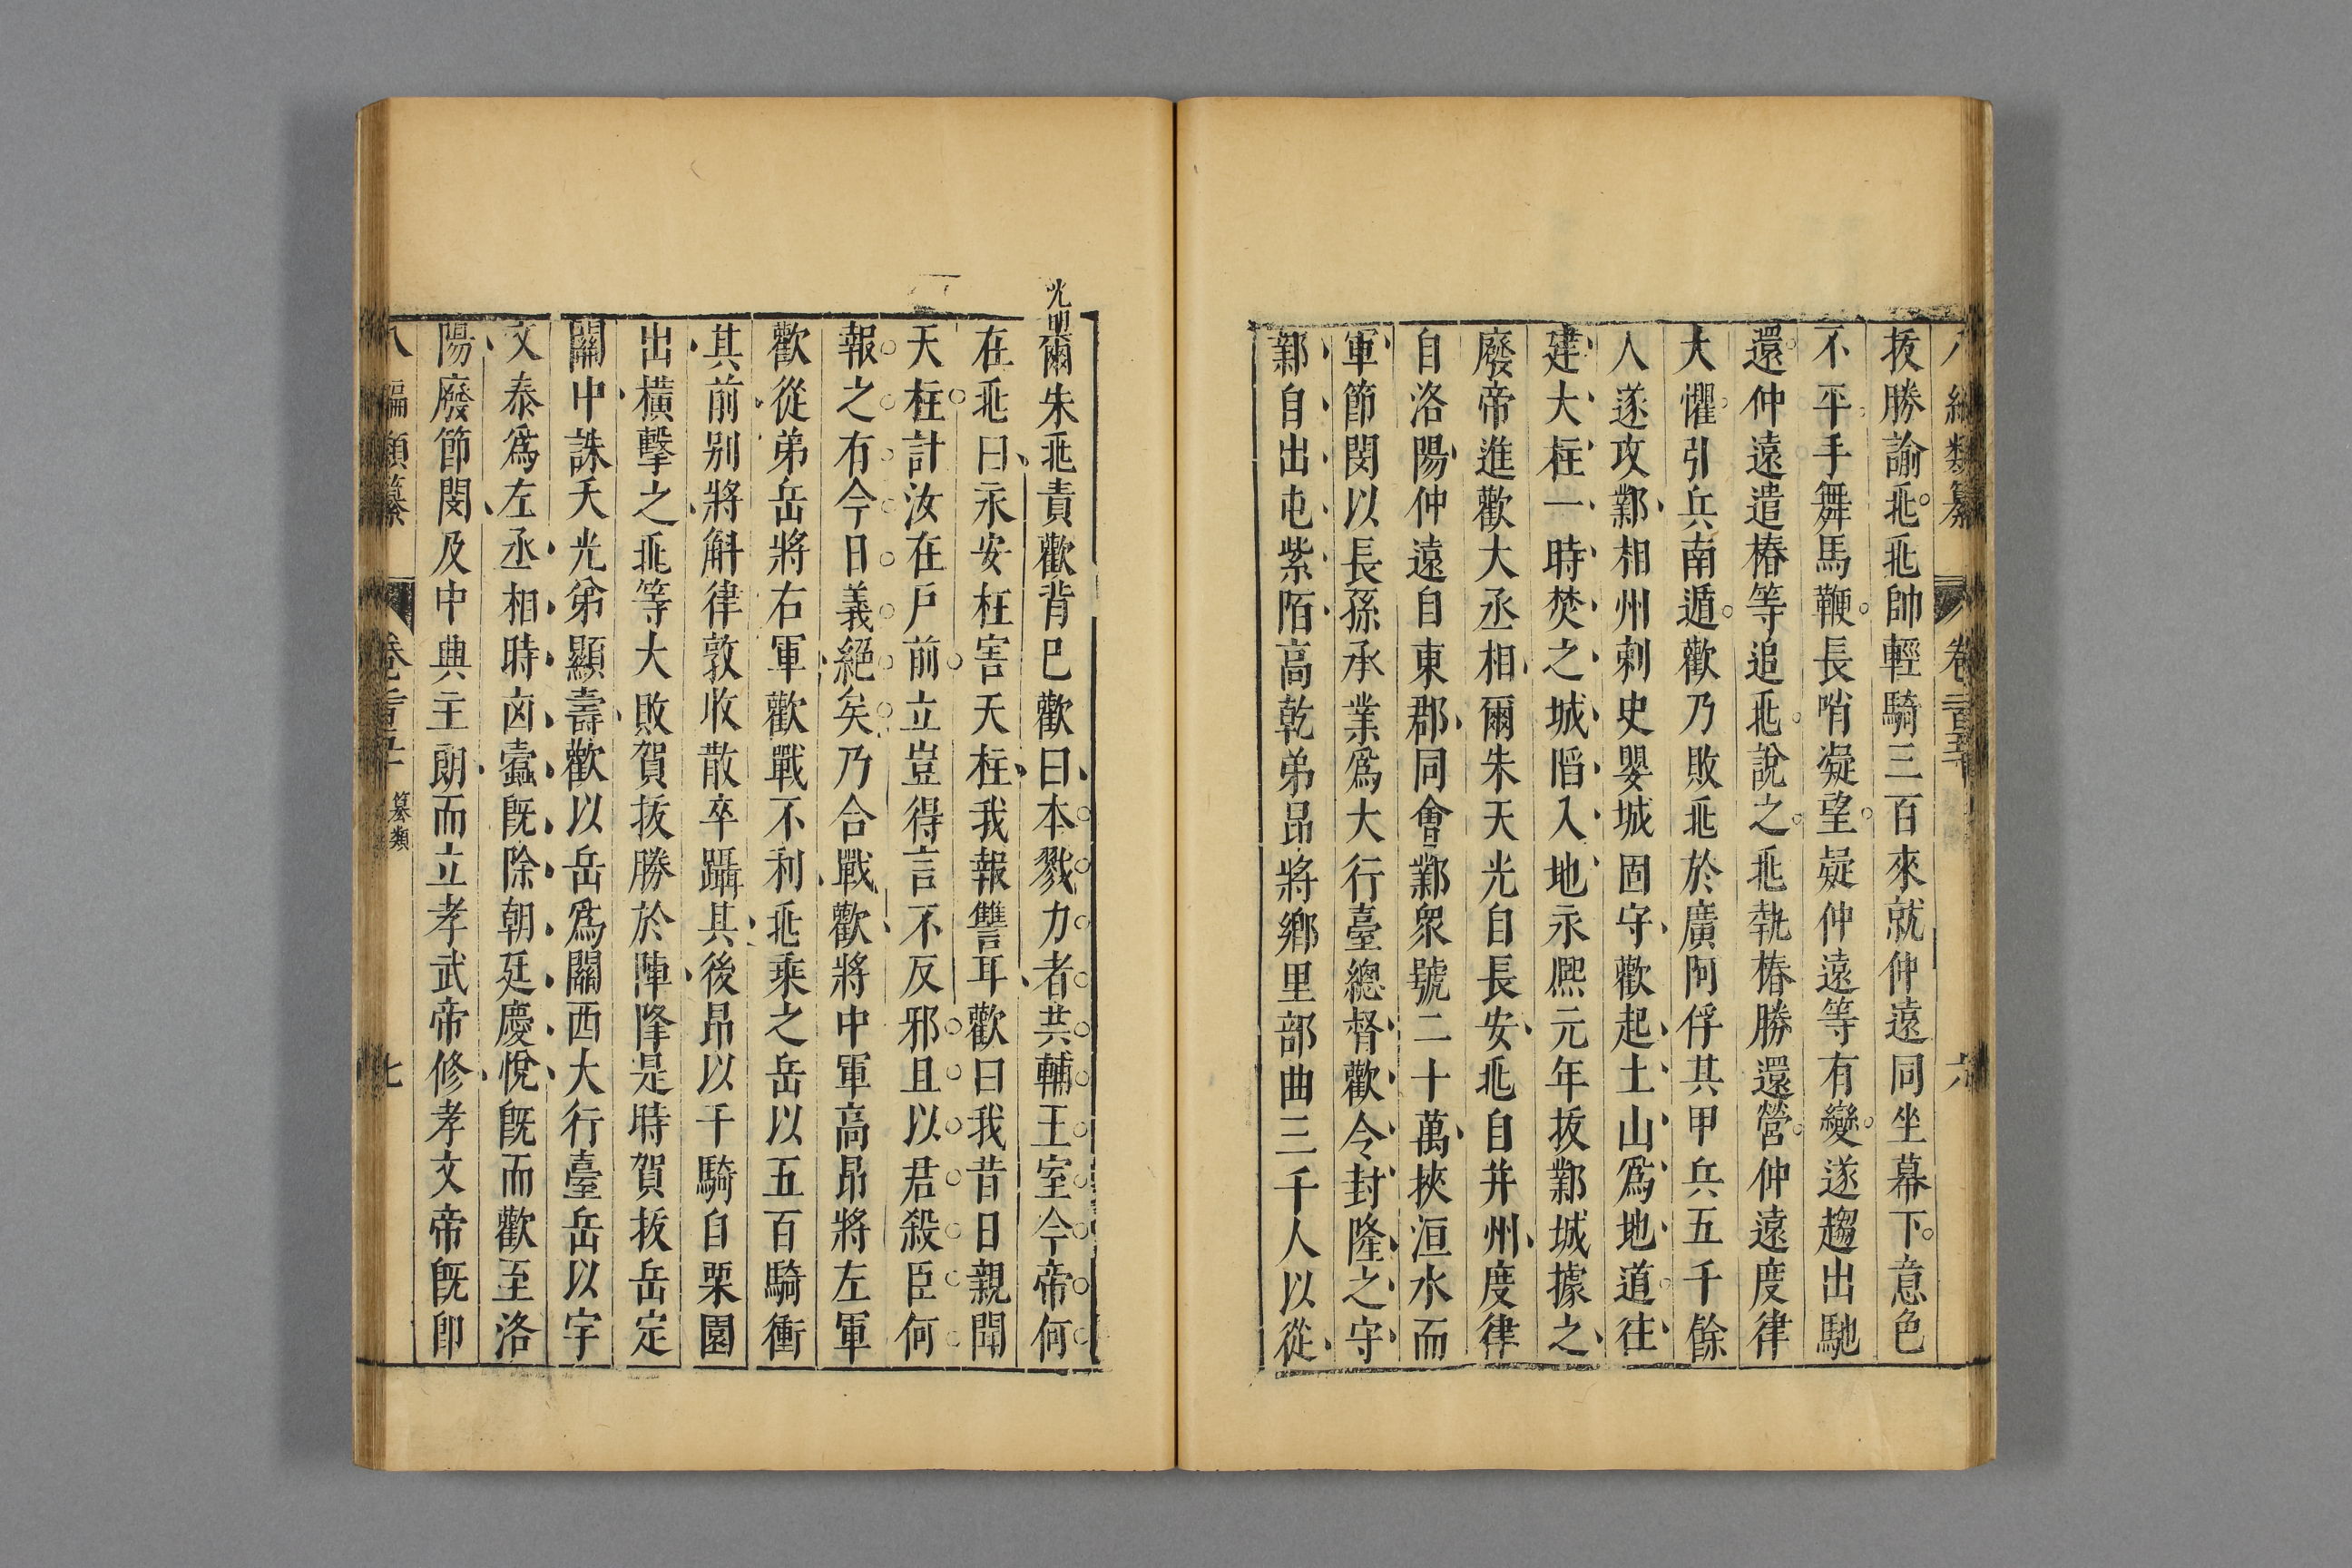 拔勝諭兆兆帥輕騎三百來就仲遠同坐幕下意色
不平手舞馬鞭長哨凝望疑仲遠等有變遂趨出馳
還仲遠遣椿等追兆說之兆執椿勝還營仲遠度律
大懼引兵南遁歡乃敗兆於廣阿俘其甲兵五千餘
人遂攻鄴相州刺史嬰城固守歡起土山爲地道往
建大柱一時焚之城陷入地永熈元年拔鄴城據之
廢帝進歡大丞相爾朱天光自長安兆自并州度律
自洛陽仲遠自東郡同會鄴衆號二十萬挾洹水而
軍節閔以長孫承業爲大行臺總督歡令封隆之守
鄴自出屯紫陌高乾弟昂將鄉里部曲三千人以從
六
光明
爾朱兆責歡背巳歡曰本戮力者共輔王室今帝何
在兆曰永安枉害天柱我報讐耳歡曰我昔日親聞
天柱計汝在戸前立豈得言不反邪且以君殺臣何
報之有今日義絕矣乃合戰歡將中軍高昂將左軍
歡從弟岳將右軍歡戰不利兆乘之岳以五百騎衝
其前別將斛律敦收散卒躡其後昂以千騎自栗園
出橫擊之兆等大敗賀拔勝於陣降是時賀拔岳定
關中誅天光弟顯壽歡以岳爲關西大行臺岳以宇
文泰爲左丞相時凶蠹旣除朝廷慶悅旣而歡至洛
陽廢節閔及中興主朗而立孝武帝修孝文帝旣卽
八編類纂
七